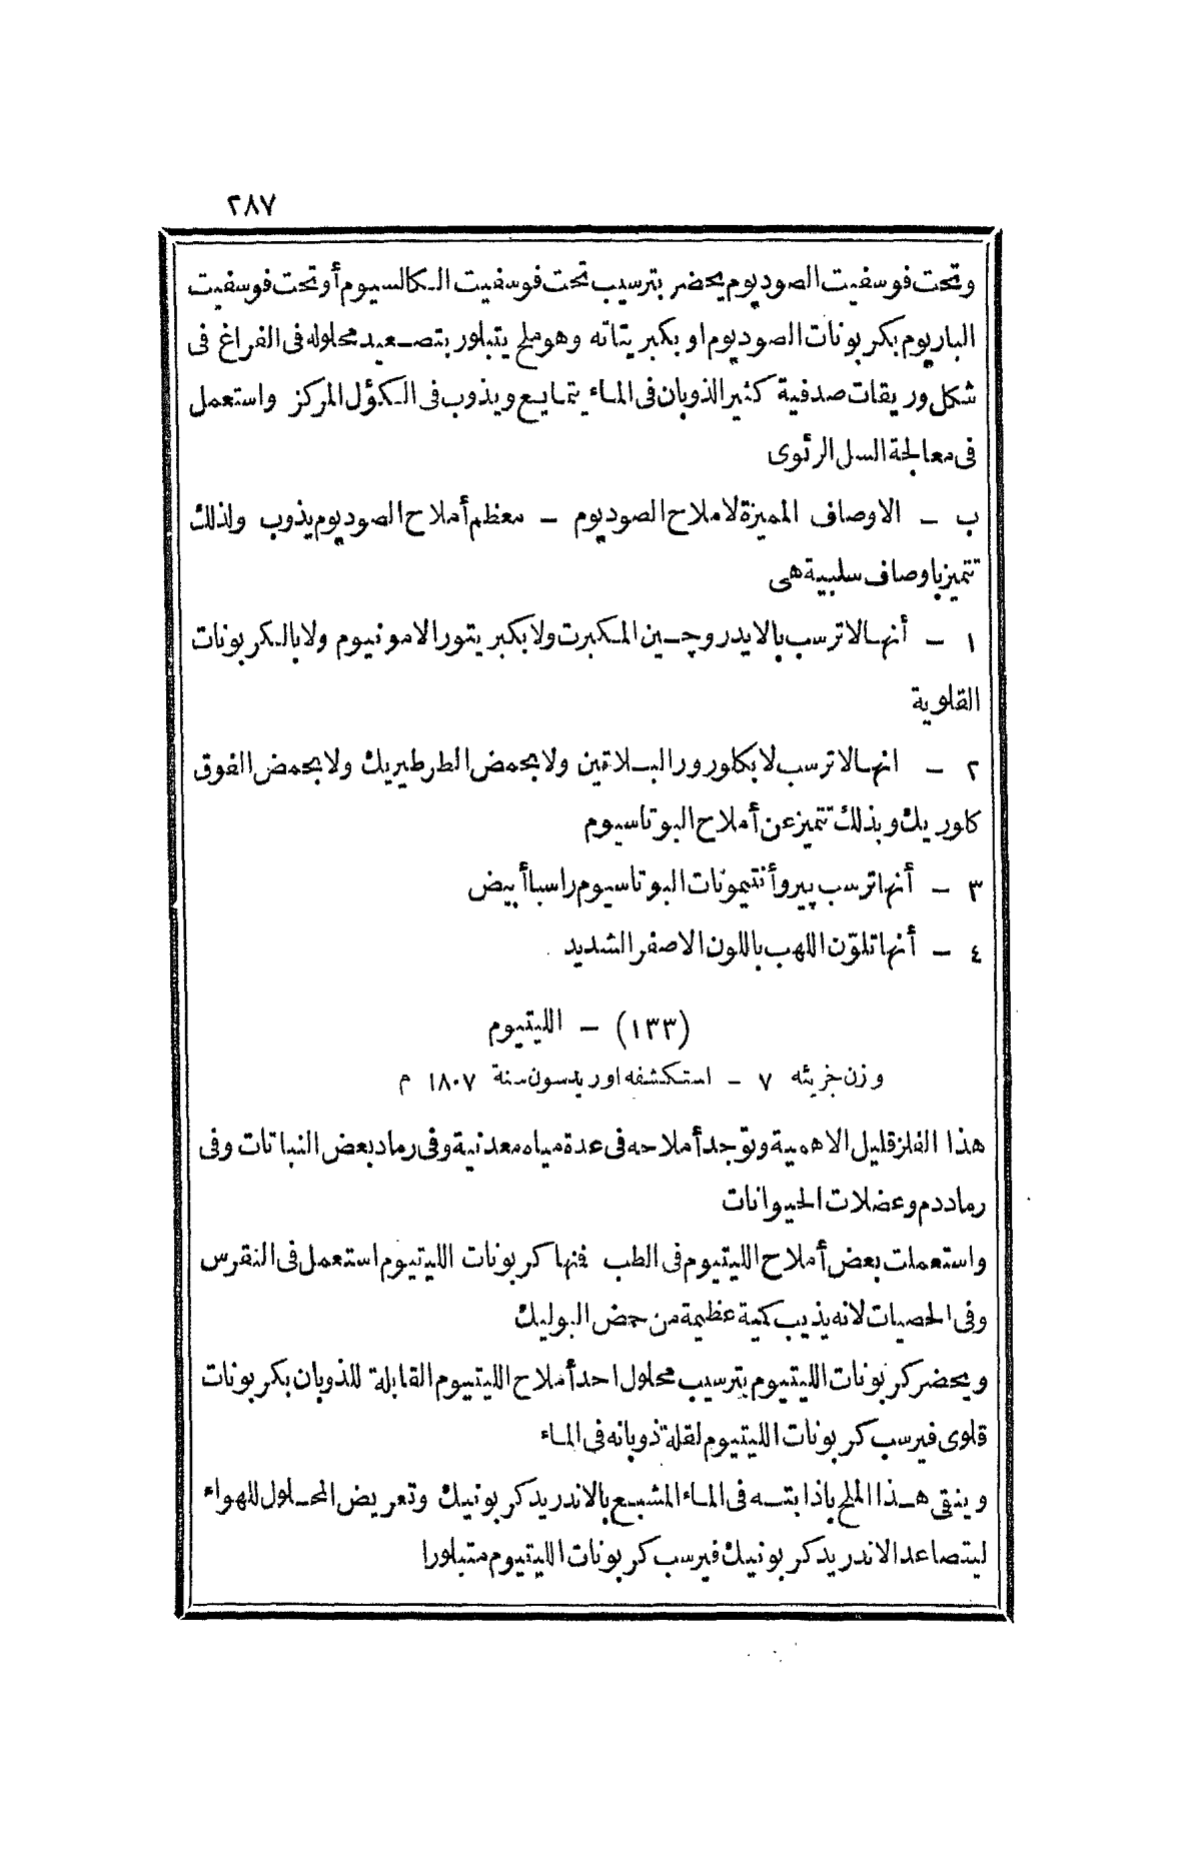 ٢٨٧
وتحت فوسفيت الصوديوم يحضر بترسيب تحت فوسفيت الكالسيوم أو تحت فوسفيت
الباريوم بكربونات الصوديوم او بكبريتاته وهو ملح يتبلور بتصعيد محلوله فى الفراغ فى
شكل وريقات صدفية كثير الذوبان فى الماء يتمايع ويذوب فى الكؤل المركز واستعمل
فى معالجة السل الرئوى
ب – الاوصاف المميزة لاملاح الصوديوم – معظم أملاح الصوديوم يذوب ولذلك
تتميز باوصاف سلبية هى
١ – أنها لا ترسب بالايدروچين المكبرت ولا بكبريتور الامونيوم ولا بالكربونات
القلوية
٢ – انها لا ترسب لا بكلورور البلاتين ولا بحمض الطرطيريك ولا بحمض الفوق
كلوريك وبذلك تتميز عن أملاح البوتاسيوم
٣ – أنها ترسب پيروأنتيمونات البوتاسيوم راسبا أبيض
٤ – أنها تلوّن اللهب باللون الاصفر الشديد
(١٣٣) – الليتيوم
وزن جزيئه ٧ – استكشفه اوريدسون سنة ١٨٠٧ م
هذا الفلز قليل الاهمية وتوجد أملاحه فى عدة مياه معدنية وفى رماد بعض النباتات وفى
رماد دم وعضلات الحيوانات
واستعملت بعض أملاح الليتيوم فى الطب فمنها كربونات الليتيوم استعمل فى النقرس
وفى الحصيات لانه يذيب كمية عظيمة من حمض البوليك
ويحضر كربونات الليتيوم بترسيب محلول احد أملاح الليتيوم القابلة للذوبان بكربونات
قلوى فيرسب كربونات الليتيوم لقلة ذوبانه فى الماء
وينقى هذا الملح باذابته فى الماء المشبع بالاندريد كربونيك وتعريض المحلول للهواء
ليتصاعد الاندريد كربونيك فيرسب كربونات الليتيوم متبلورا